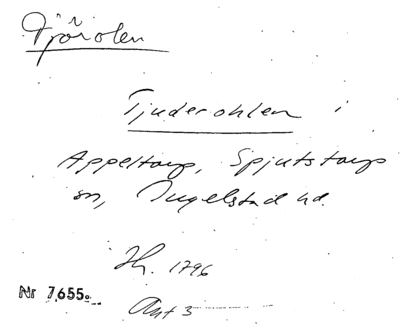 Tjörolen
Tjuderohlen i
Appeltorp, Spjutstorps
sn, Ingelstad hd.
Jh. 1796
Nr 7655.
Akt 3